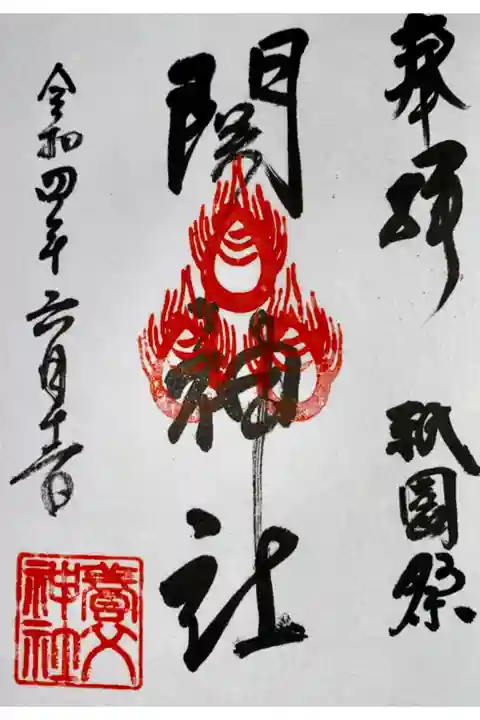 奉拝
祇園祭
関神社
令和四年六月十二日
神社